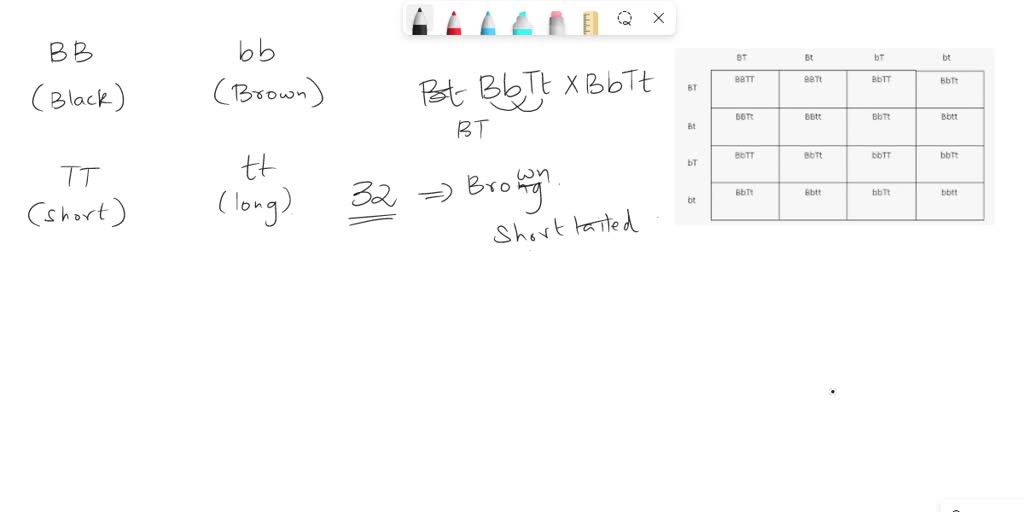 BB bb
(Black) (Brown)
Bt BbTt X BbTt
BT
TT tt
(short) (long)
32 ⇒ Brown
Short tailed
BT Bt bT bt
BT BBTT BBTt BbTT BbTt
Bt BBTt BBtt BbTt Bbtt
bT BbTT BbTt bbTT bbTt
bt BbTt Bbtt bbTt bbtt